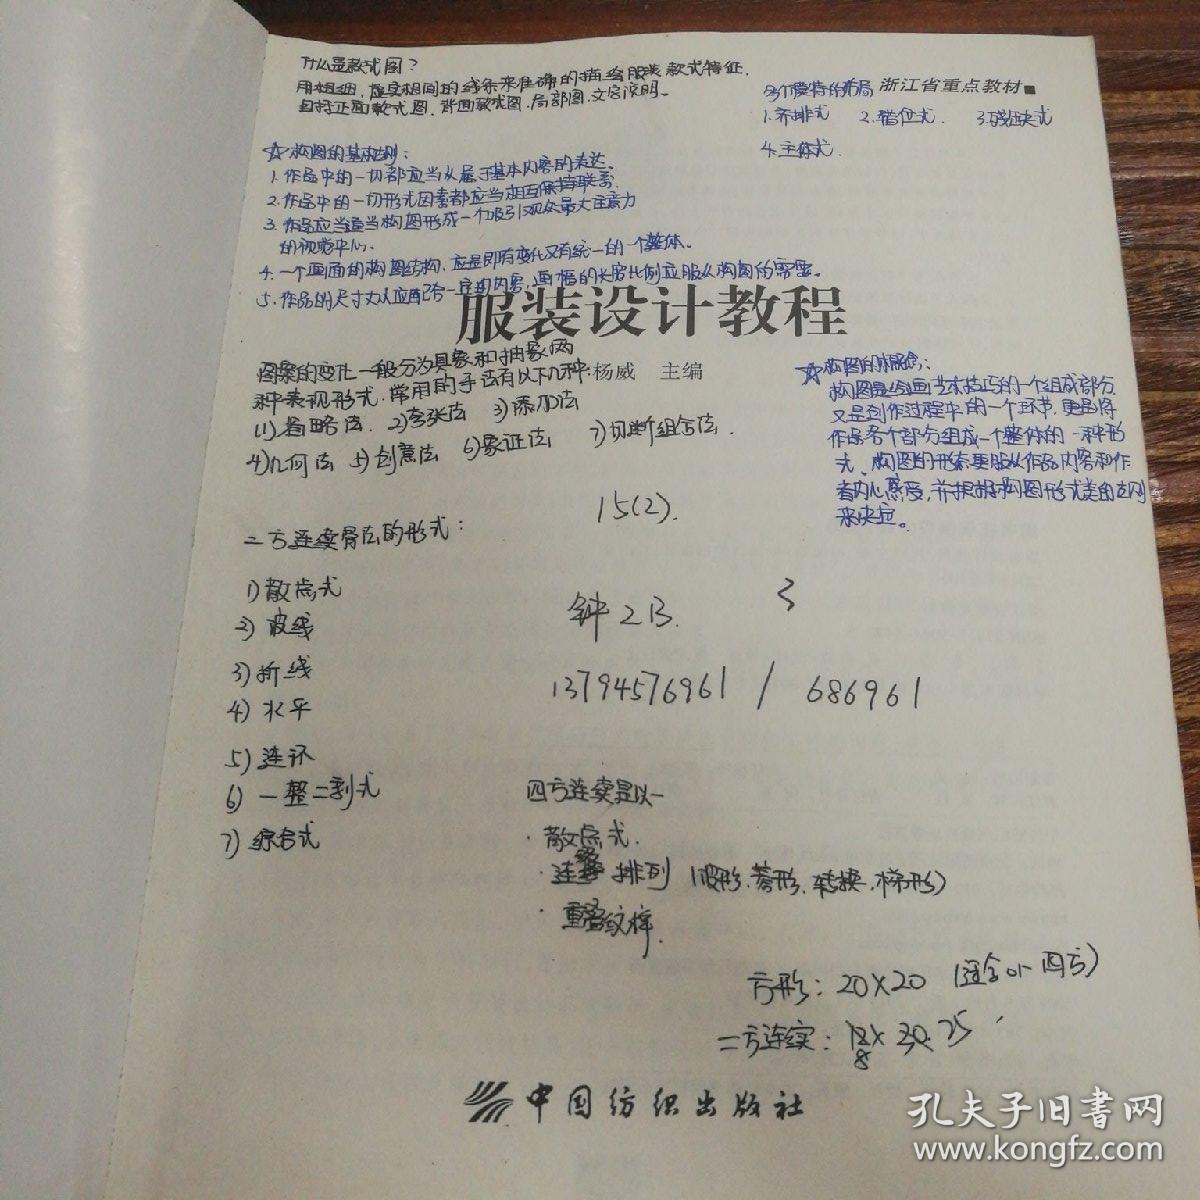 什么是款式图?
用粗细、虚实相间的线条来准确的描绘服装款式特征.
包括正面款式图.背面款式图.局部图.文字说明.
多个模特的布局
浙江省重点教材■
1.齐排式 2.错位式. 3.残缺式
4.主体式.
☆构图的基本法则:
1.作品中的一切都应当从属于基本内容的表达。
2.作品中的一切形式因素都应当相互保持联系.
3.作品应当适当构图形成一个吸引观众最大注意力
的视觉中心.
4.一个画面的构图结构,应是即有变化又有统一的一个整体.
5.作品的尺寸大小应配合一定的内容,画幅的长宽比例应服从构图的需要。
服装设计教程
杨威 主编
图案的变化一般分为具象和抽象两
种表现形式.常用的手法有以下几种:
(1)省略法. 2)夸张法 3)添加法
4)几何法 5)创意法 6)象征法 7)切断组合法.
☆构图的概念:
构图是绘画艺术技巧的一个组成部分
又是创作过程中的一个环节,更是将
作品各个部分组成一个整体的一种形
式.构图的形态要服从作品内容和作
者内心感受,并根据构图形式美的法则
来决定。
15(2).
二方连续骨法的形式:
1)散点式
2)波线
3)折线
4)水平
5)连环
6)一整二剖式
7)综合式
钟2B. 3
13794576961 / 686961
四方连续是以一
·散点式.
·连缀排列(波形、菱形、转换、梯形)
·重叠纹样.
方形:20×20 (适合or四方)
二方连续: × 30.25
8
中国纺织出版社
孔夫子旧书网
www.kongfz.com